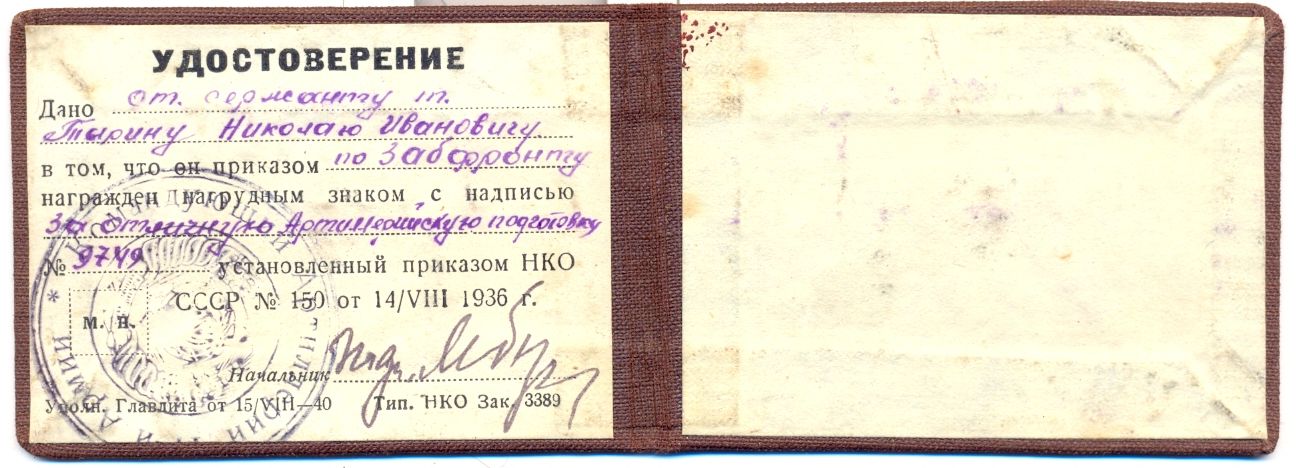 УДОСТОВЕРЕНИЕ
Дано ст. сержанту т.
Тырину Николаю Ивановичу
в том, что он приказом по Забфронту
награжден нагрудным знаком с надписью
За отличную Артиллерийскую подготовку
№ 9749 установленный приказом НКО
СССР № 150 от 14/VIII 1936 г.
м. п.
Начальник
Уполн. Главлита от 15/VIII—40 Тип. НКО Зак. 3389